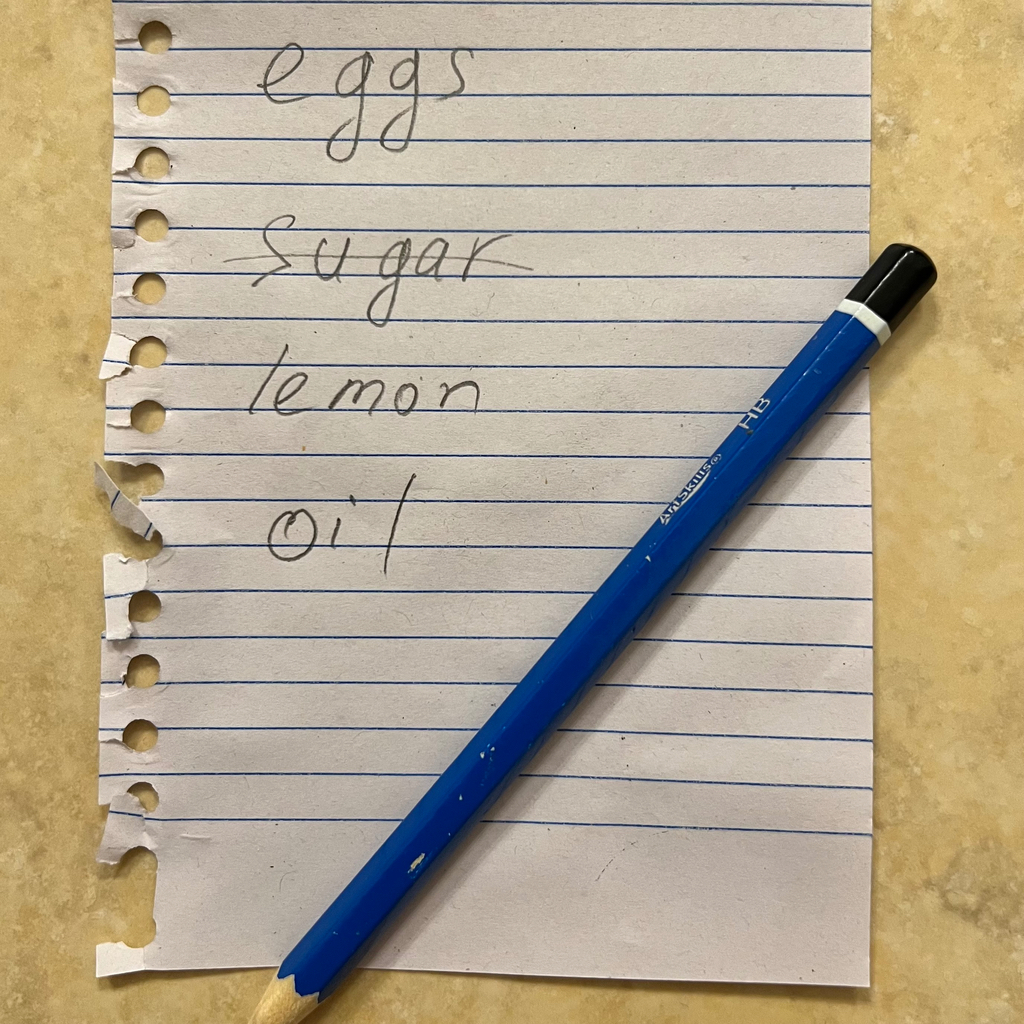 eggs
sugar
lemon
oil
HB
ArtSkills®